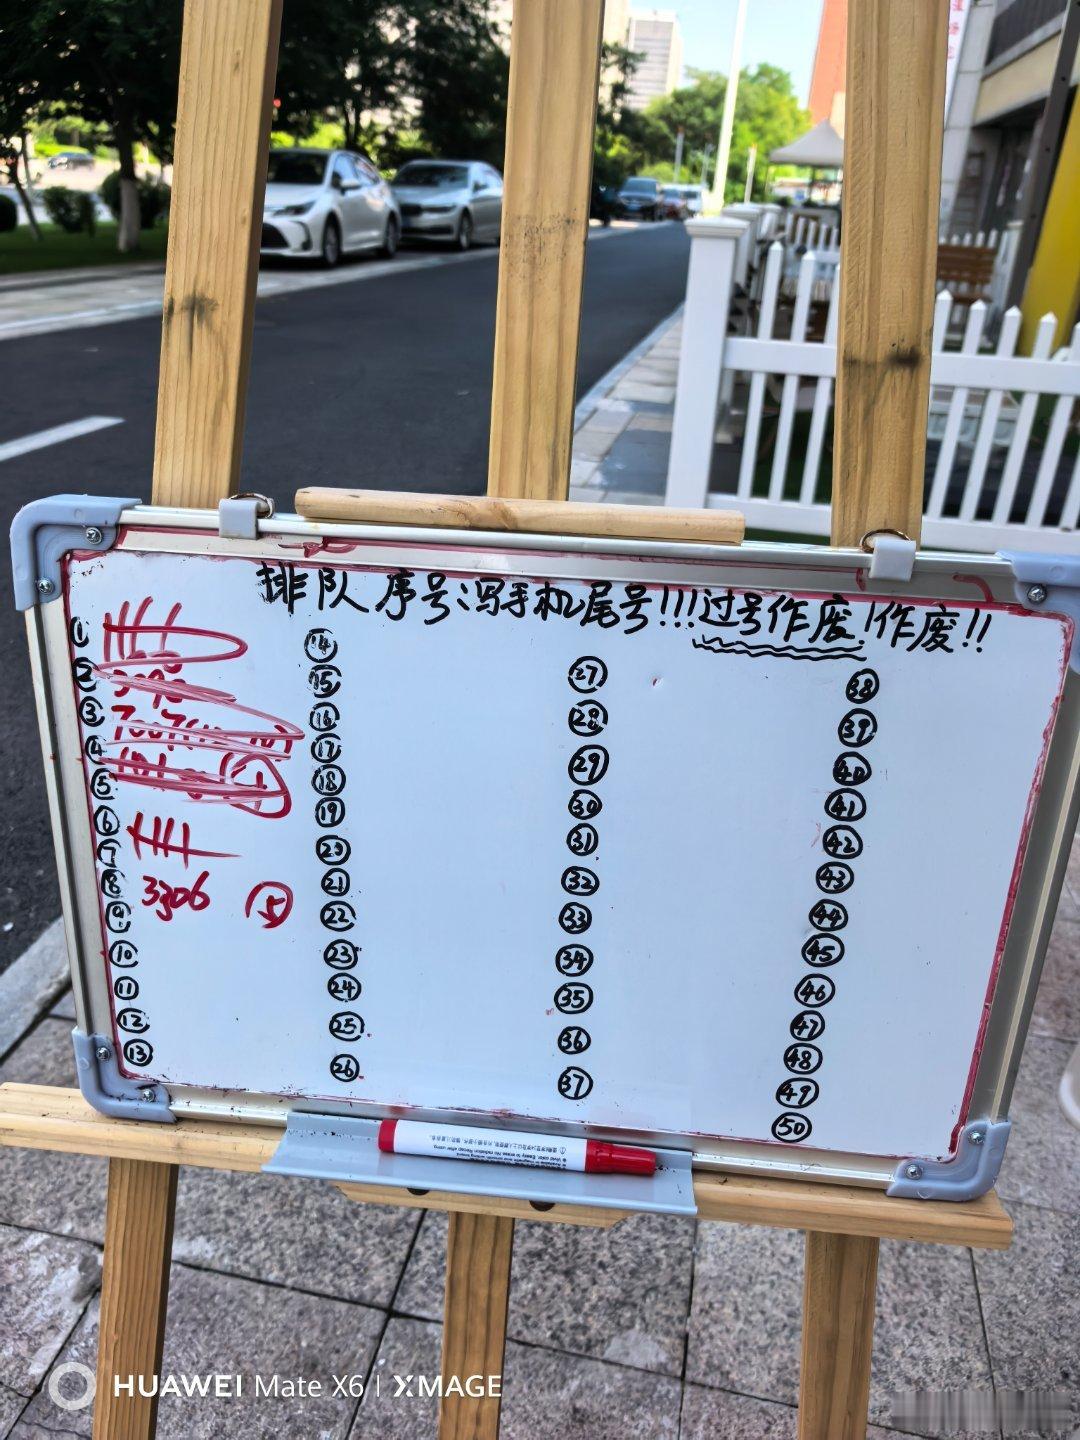 排队序号:写手机尾号!!!过号作废!作废!!
①
②
③
④
⑤
⑥
⑦
⑧ 3306 ⑤
⑨
⑩
⑪
⑫
⑬
⑭
⑮
⑯
⑰
⑱
⑲
⑳
㉑
㉒
㉓
㉔
㉕
㉖
㉗
㉘
㉙
㉚
㉛
㉜
㉝
㉞
㉟
㊱
㊲
㊳
㊴
㊵
㊶
㊷
㊸
㊹
㊺
㊻
㊼
㊽
㊾
㊿
HUAWEI Mate X6 | XMAGE